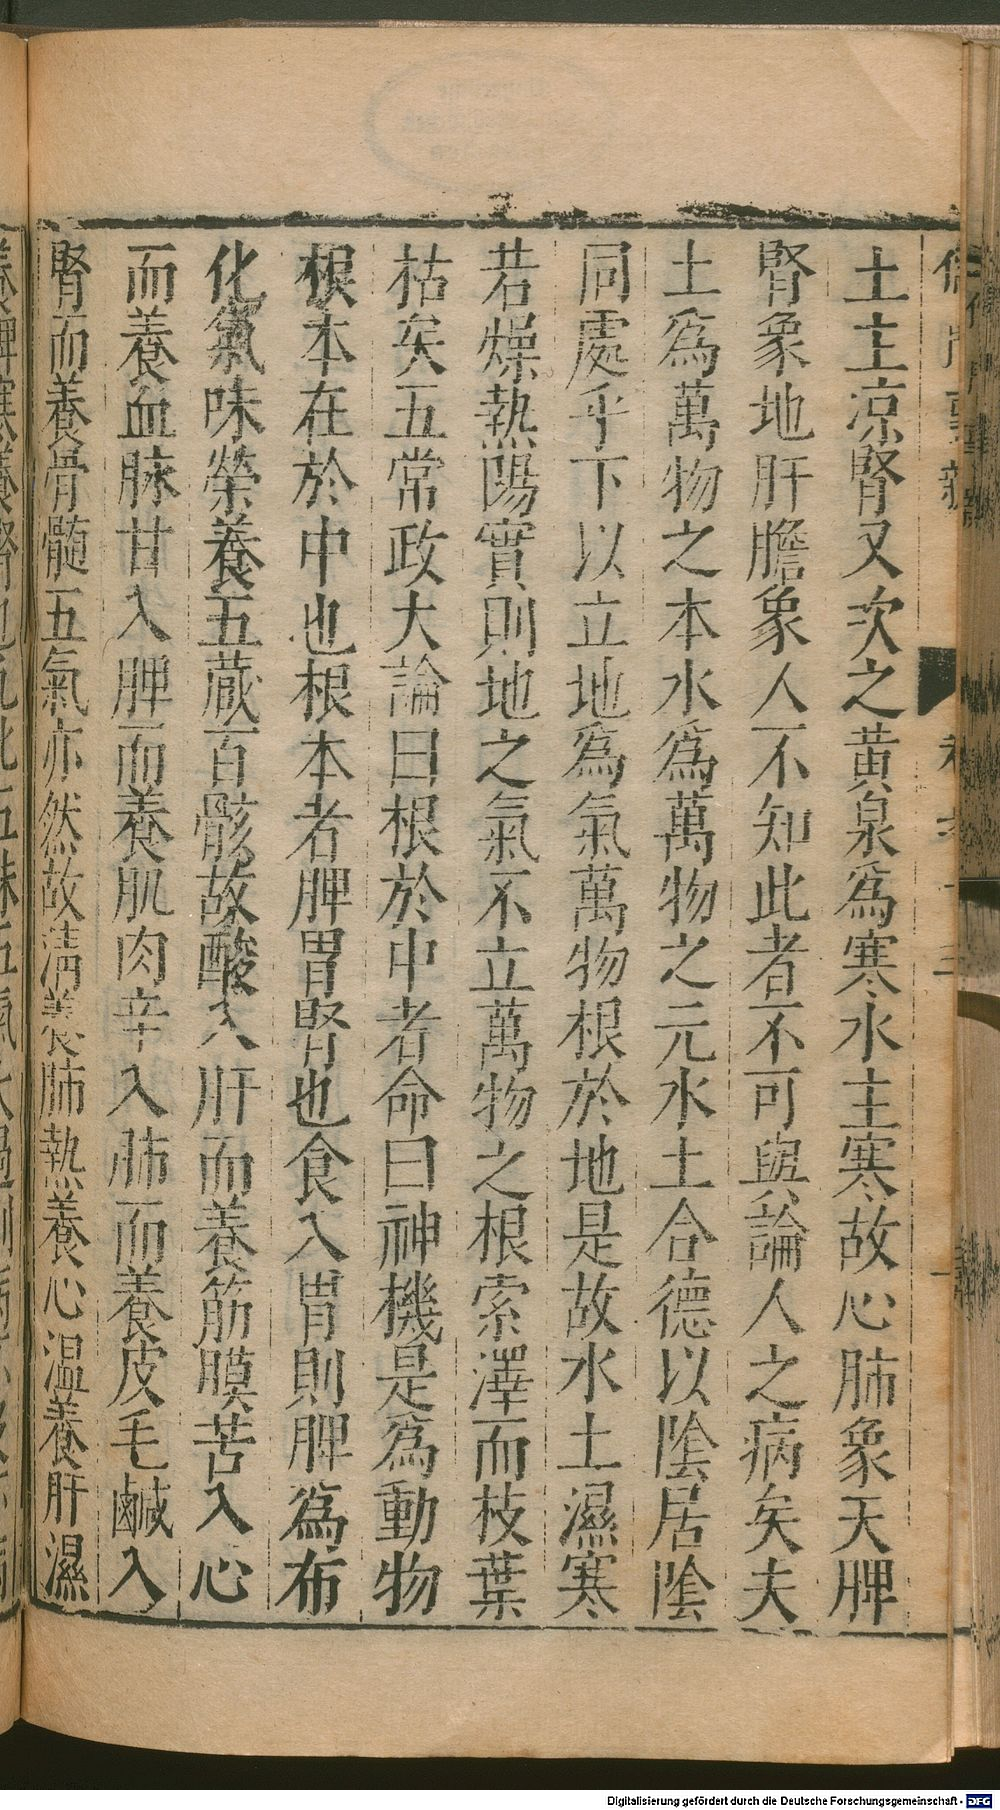 土主凉腎又次之黄泉爲寒水主寒故心肺象天脾
腎象地肝膽象人不知此者不可與論人之病矣夫
土爲萬物之本水爲萬物之元水土合德以陰居陰
同處乎下以立地爲氣萬物根於地是故水土濕寒
若燥熱陽實則地之氣不立萬物之根索澤而枝葉
枯矣五常政大論曰根於中者命曰神機是爲動物
根本在於中也根本者脾胃腎也食入胃則脾爲布
化氣味榮養五蔵百骸故酸入肝而養筋膜苦入心
而養血脉甘入脾而養肌肉辛入肺而養皮毛鹹入
腎而養骨髓五氣亦然故清養肺熱養心温養肝濕
Digitalisierung gefördert durch die Deutsche Forschungsgemeinschaft - DFG